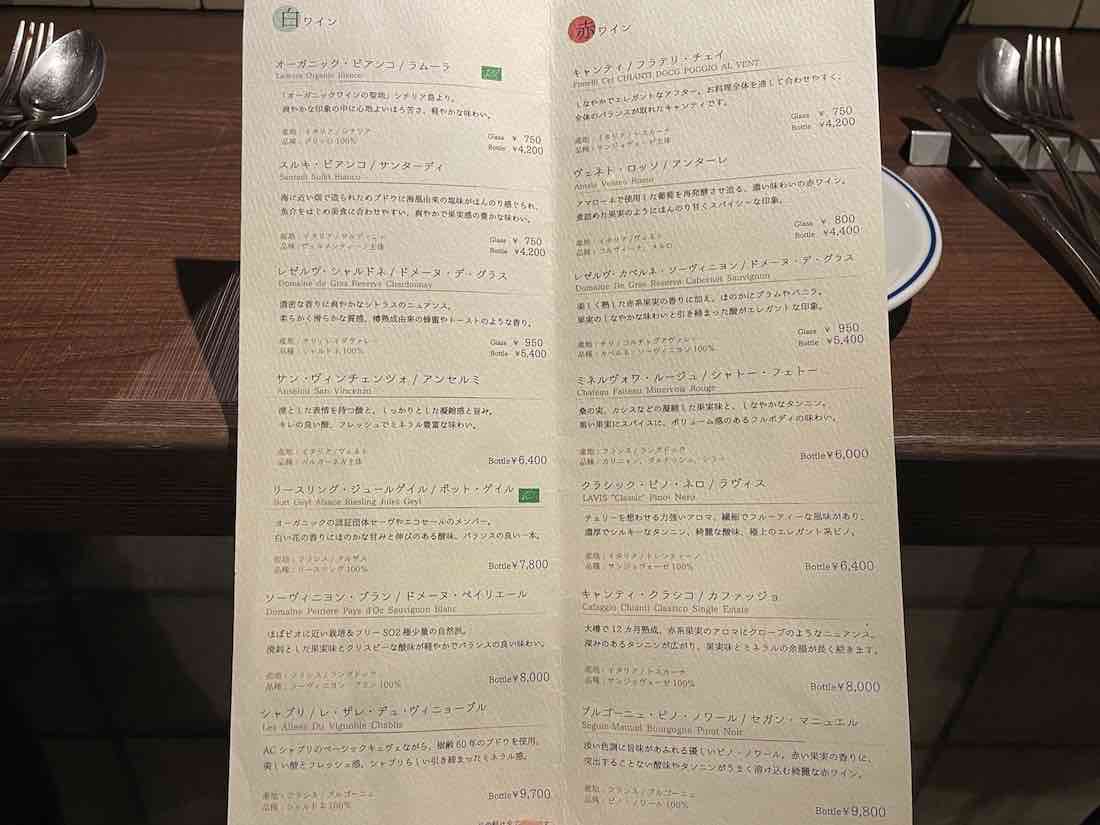 白ワイン
オーガニック・ビアンコ / ラムーラ
Lamura Organic Bianco
「オーガニックワインの聖地」シチリア島より。
爽やかな印象の中に心地よいほろ苦さ、軽やかな味わい。
産地：イタリア / シチリア
品種：グリッロ 100%
Glass ￥ 750
Bottle ￥4,200
スルキ・ビアンコ / サンターディ
Santadi Sulki Bianco
海に近い畑で造られたためブドウに海風由来の塩味がほんのり感じられ、
魚介をはじめ美食に合わせやすい、爽やかで果実感の豊かな味わい。
産地：イタリア / サルディーニャ
品種：ヴェルメンティーノ主体
Glass ￥ 750
Bottle ￥4,200
レゼルヴ・シャルドネ / ドメーヌ・デ・グラス
Domaine de Gras Reserva Chardonnay
濃密な香りに爽やかなシトラスのニュアンス。
柔らかく滑らかな質感、樽熟成由来の蜂蜜やトーストのような香り。
産地：チリ / レイダヴァレー
品種：シャルドネ 100%
Glass ￥ 950
Bottle ￥5,400
サン・ヴィンチェンツォ / アンセルミ
Anselmi San Vincenzo
凛とした表情を持つ酸と、しっかりとした凝縮感と旨み。
キレの良い酸、フレッシュでミネラル豊富な味わい。
産地：イタリア / ヴェネト
品種：ガルガーネガ主体
Bottle￥6,400
リースリング・ジュールゲイル / ボット・ゲイル
Bott Geyl Alsace Riesling Jules Geyl
オーガニックの認証団体セーヴやエコセールのメンバー。
白い花の香りにほのかな甘みと伸びのある酸味、バランスの良い一本。
産地：フランス / アルザス
品種：リースリング 100%
Bottle￥7,800
ソーヴィニヨン・ブラン / ドメーヌ・ペイリエール
Domaine Perriere Pays d'Oc Sauvignon Blanc
ほぼビオに近い栽培＆フリー SO2 極少量の自然派。
溌剌とした果実味とクリスピーな酸味が軽やかでバランスの良い味わい。
産地：フランス / ラングドック
品種：ソーヴィニヨン・ブラン 100%
Bottle￥8,000
シャブリ / レ・ザレ・デュ・ヴィニョーブル
Les Allees Du Vignoble Chablis
AC シャブリのベーシックキュヴェながら、樹齢 60 年のブドウを使用。
美しい酸とフレッシュ感、シャブリらしい引き締まったミネラル感。
産地：フランス / ブルゴーニュ
品種：シャルドネ 100%
Bottle￥9,700
赤ワイン
キャンティ / フラテリ・チェイ
Fratelli Cei CHIANTI DOCG POGGIO AL VENT
しなやかでエレガントなアフター。お料理全体を通して合わせやすく、
全体のバランスが取れたキャンティです。
産地：イタリア / トスカーナ
品種：サンジョヴェーゼ主体
Glass ￥ 750
Bottle ￥4,200
ヴェネト・ロッソ / アンターレ
Antale Veneto Rosso
アマローネで使用した葡萄を再発酵させ造る、濃い味わいの赤ワイン。
煮詰めた果実のようにほんのり甘くスパイシーな印象。
産地：イタリア / ヴェネト
品種：コルヴィーナ、メルロ
Glass ￥ 800
Bottle ￥4,400
レゼルヴ・カベルネ・ソーヴィニヨン / ドメーヌ・デ・グラス
Domaine De Gras Reserva Cabernet Sauvignon
美しく熟した赤系果実の香りに加え、ほのかにプラムやバニラ。
果実のしなやかな味わいと引き締まった酸がエレガントな印象。
産地：チリ / コルチャグアヴァレー
品種：カベルネ・ソーヴィニヨン 100%
Glass ￥ 950
Bottle ￥5,400
ミネルヴォワ・ルージュ / シャトー・フェトー
Chateau Faiteau Minervois Rouge
桑の実、カシスなどの凝縮した果実味と、しなやかなタンニン。
黒い果実にスパイスに、ボリューム感のあるフルボディの味わい。
産地：フランス / ラングドック
品種：カリニャン、グルナッシュ、シラー
Bottle￥6,000
クラシック・ピノ・ネロ / ラヴィス
LAVIS "Classic" Pinot Nero
チェリーを想わせる力強いアロマ。繊細でフルーティーな風味があり、
濃厚でシルキーなタンニン、綺麗な酸味、極上のエレガント系ピノ。
産地：イタリア / トレンティーノ
品種：サンジョヴェーゼ 100%
Bottle￥6,400
キャンティ・クラシコ / カファッジョ
Cafaggio Chianti Classico Single Estate
大樽で 12 カ月熟成、赤系果実のアロマにクローブのようなニュアンス。
深みのあるタンニンが広がり、果実味とミネラルの余韻が長く続きます。
産地：イタリア / トスカーナ
品種：サンジョヴェーゼ 100%
Bottle￥8,000
ブルゴーニュ・ピノ・ノワール / セガン・マニュエル
Seguin-Manuel Bourgogne Pinot Noir
淡い色調に旨味があふれる優しいピノ・ノワール。赤い果実の香りに、
突出することない酸味やタンニンがうまく溶け込む綺麗な赤ワイン。
産地：フランス / ブルゴーニュ
品種：ピノ・ノワール 100%
Bottle￥9,800